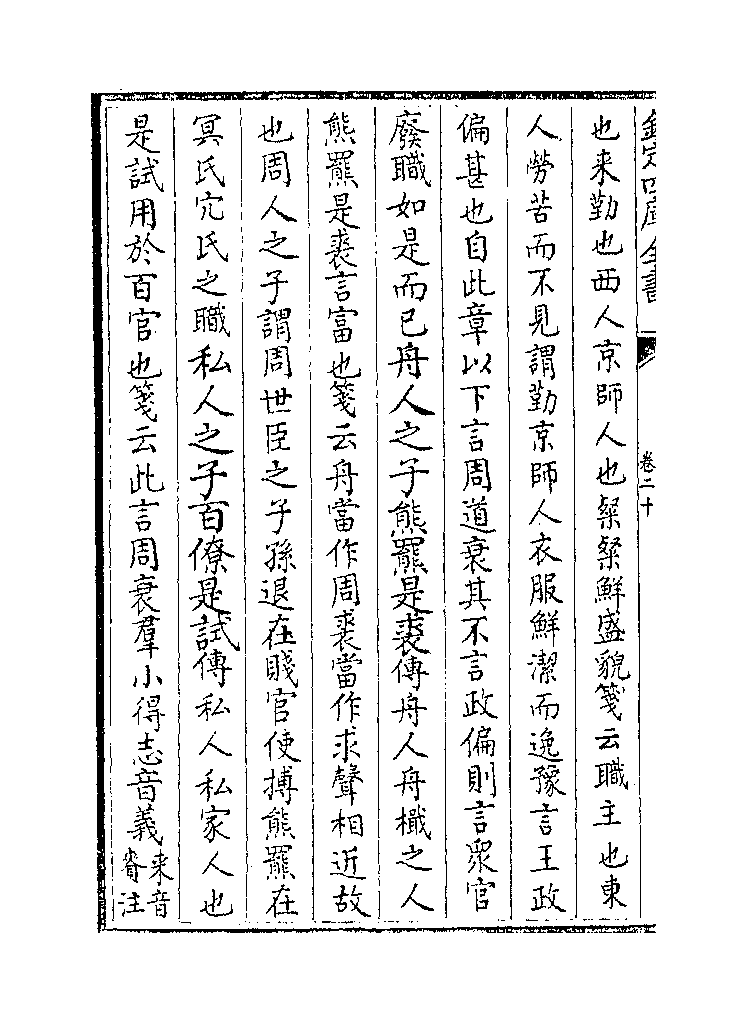 欽定四庫全書
卷二十
也来勤也西人京師人也粲粲鮮盛貌箋云職主也東
人勞苦而不見謂勤京師人衣服鮮潔而逸豫言王政
偏甚也自此章以下言周道衰其不言政偏則言衆官
廢職如是而已舟人之子熊羆是裘傳舟人舟檝之人
熊羆是裘言富也箋云舟當作周裘當作求聲相近故
也周人之子謂周世臣之子孫退在賤官使搏熊羆在
冥氏穴氏之職私人之子百僚是試傳私人私家人也
是試用於百官也箋云此言周衰羣小得志音義来音
脊注